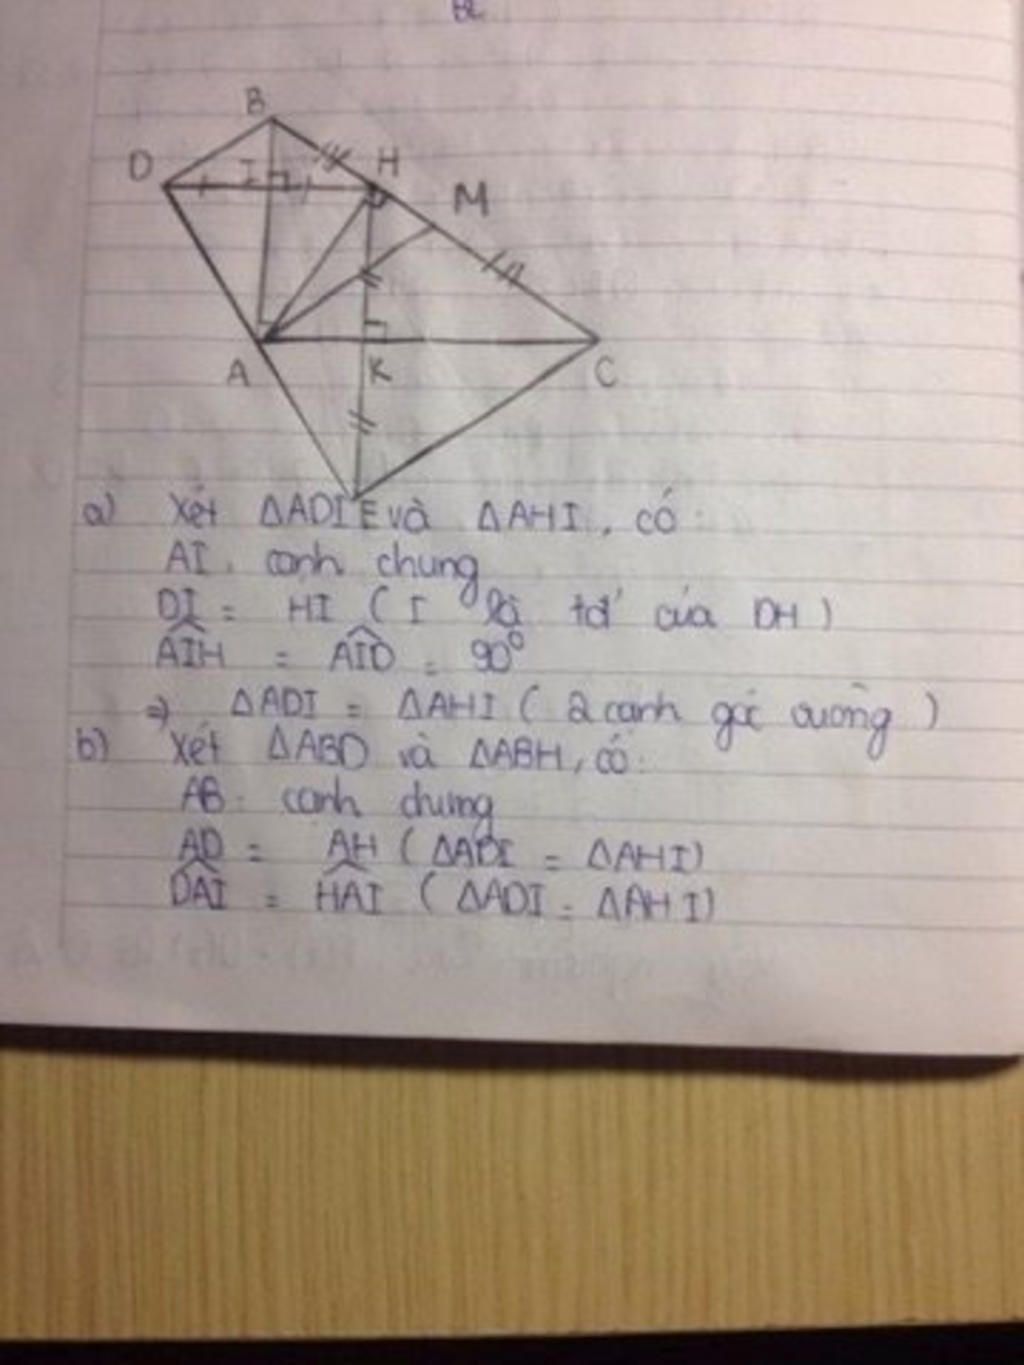 B
D
I
H
M
A
K
C
E
a) Xét ΔADI và ΔAHI, có:
AI: cạnh chung
DI = HI (I là tđ của DH)
AIH = AID = 90°
=> ΔADI = ΔAHI (2 cạnh góc vuông)
b) Xét ΔABD và ΔABH, có:
AB: cạnh chung
AD = AH (ΔADI = ΔAHI)
DAI = HAI (ΔADI = ΔAHI)